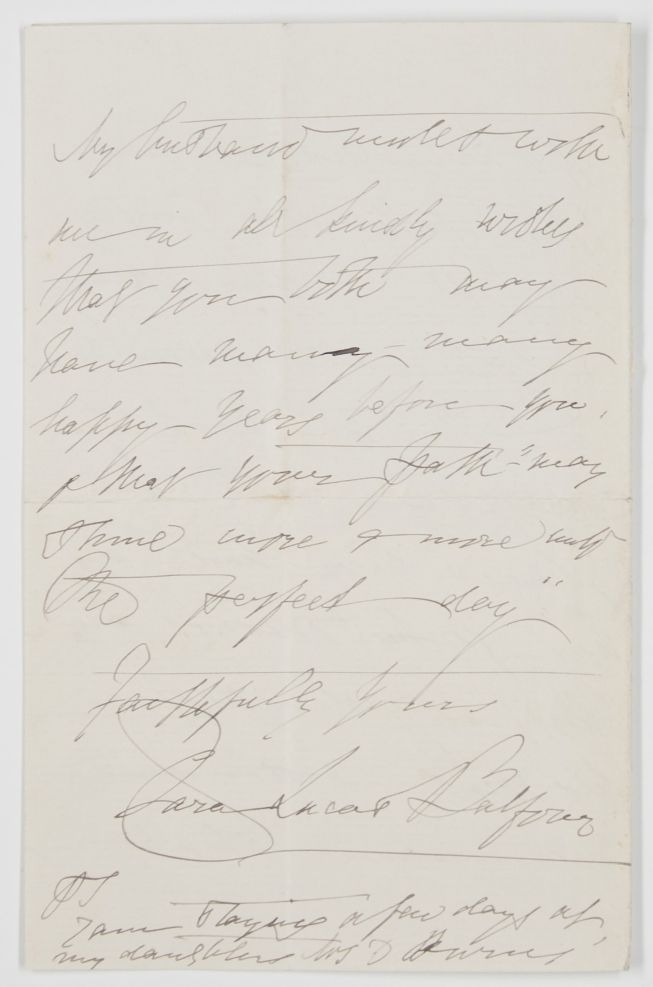 My husband unites with
me in all kindly wishes
that you both may
have many - many
happy years before you,
& that your path "may
shine more & more unto
the perfect day"
Faithfully Yours
Clara Lucas Balfour
PS
I am staying a few days at
my daughters Mrs D Burns